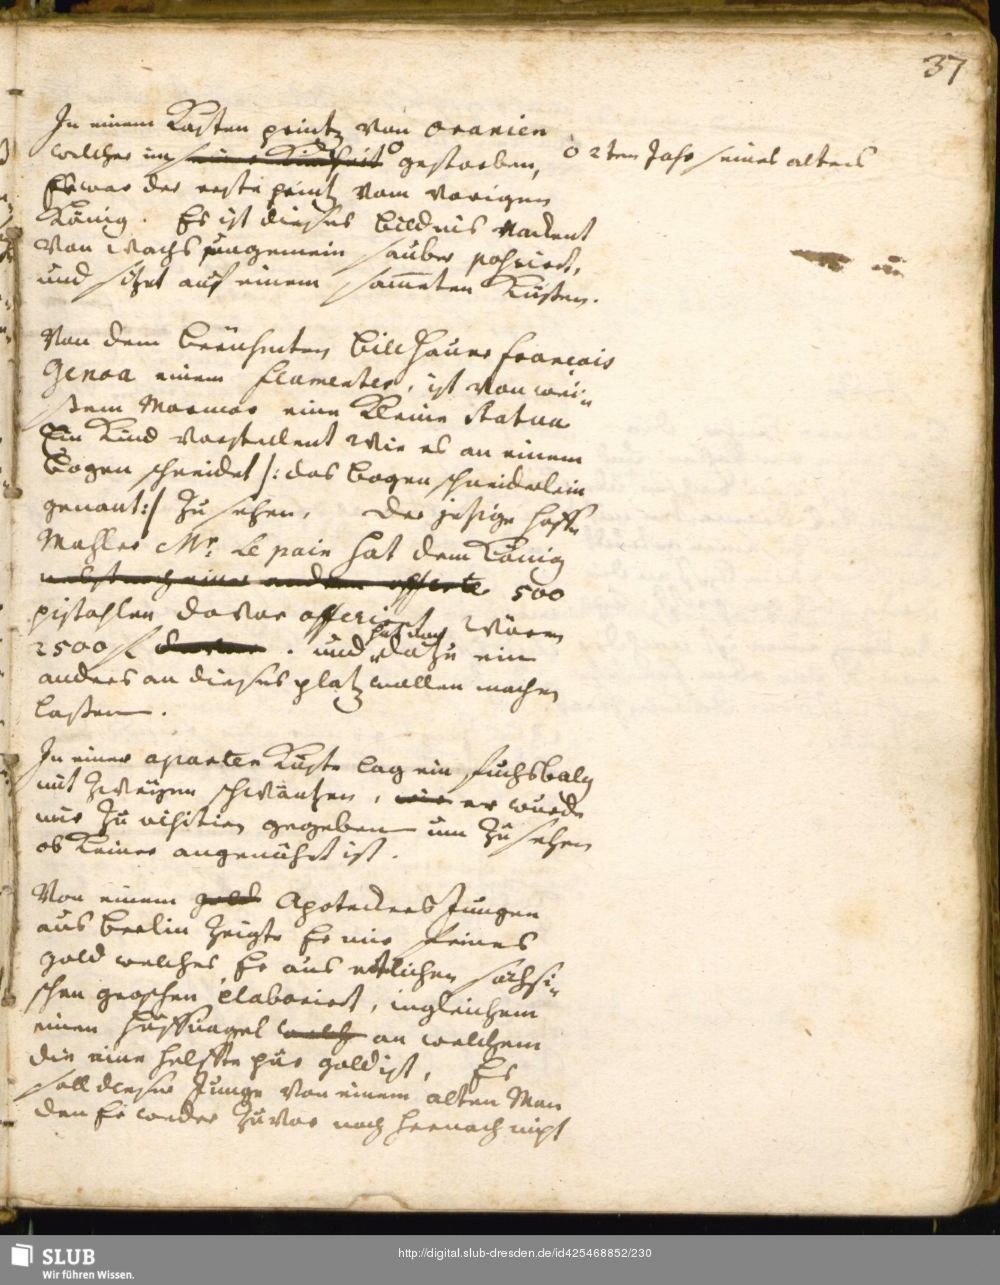 37
In einem Kasten printz von Oranien
welcher im seine Kindheit gestorben,
o 2ten Jahr seines alters
Er war der erste printz vom vorigen
König. Es ist dieses bildnis nackent
von wachs ungemein sauber poßiert,
und sitzet auf einem sam̅eten Küßen.
Von dem berühmten bildhauer francois
Genoa einem flamender, ist von wei-
ßem Marmor eine kleine statua
Ein Kind vorstellent wie es an einem
bogen schneidet /: das bogen schneiderlein
genant :/ zu sehen, der jetzige hoff
Mahler Mr. Le pain hat dem König
nebst noch einer andern offerte 500
pistohlen davor offeriert wären
2500 f . und dazu ein
anders an dieses platz wollen machen
laßen.
In einer aparten Küste lag ein fuchsbalg
mit zweyen schwäntzen, wie er wurde
mir zu visitien gegeben um zu sehen
ob keiner angenähet ist.
Von einem gold Apoteckers Jungen
aus berlin zeigte Er mir feines
gold welches Er aus etlichen sächsi-
schen groschen elaboriert, ingleichem
einen huffnagel welch an welchem
die eine helffte pur gold ist, Es
soll dieser Junge von einem alten Man
den Er weder zuvor noch hernach nicht
SLUB
Wir führen Wissen.
http://digital.slub-dresden.de/id425468852/230